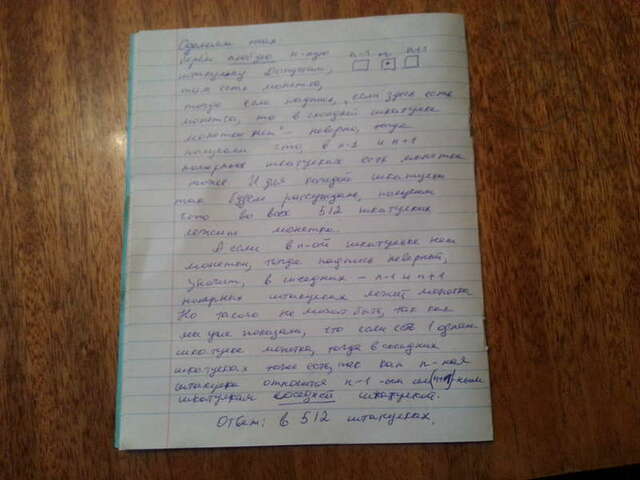 Сделаем так:
берем каждую n-ную n-1 n n+1
шкатулку. Допустим,
там есть монетка,
тогда сама надпись „если здесь есть
монетка, то в соседней шкатулке
монеток нет" - неверна, тогда
получаем что, в n-1 и n+1
номерных шкатулках есть монетка
тоже. И для каждой шкатулки
так будем рассуждать, получим
что во всех 512 шкатулках
лежит монетка.
А если в n-ой шкатулке нет
монетки, тогда надпись неверная,
значит, в соседних - n-1 и n+1
номерных шкатулках лежит монетка
Но такого не может быть, так как
мы уже показали, что если есть 1 в
шкатулке монетка, тогда в соседних
шкатулках тоже есть, так как n-ная
шкатулка относится n-1-ым и (n+1)-ным
шкатулкам соседней шкатулкой.
Ответ: в 512 шкатулках.